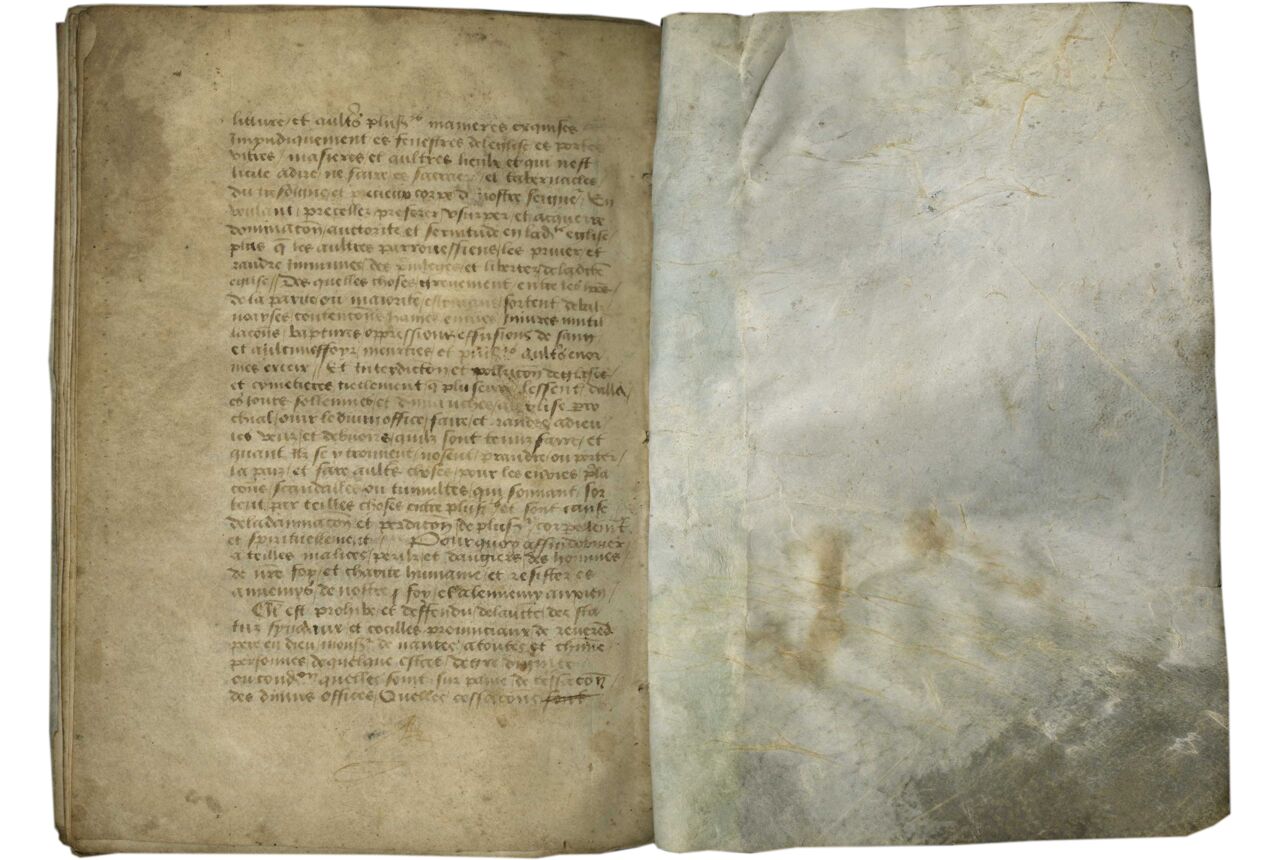 litture et aultres plus manieres exquises
Impudiquement es fenestres de leglise es portes
vitres / masieres et aultres lieulx et qui nest
licite adire ne faire es sacraires et tabernacles
du tresdigne et precieux corps de nostre seigneur / En
voulant / preceller preferer usurper et acquerre
dominacon auctorite et servitude en lad eglise
plus q les aultres parrouessiens / les priver et
randre Immunes des privileges et libertez de ladicte
eglise // Des quelles choses entre les
de la partie ou maiorite sortent debat
noayses contencons haines envies Iniures mutil
lacons baptures oppressions effusions de sanc
et meurtres et plus aults enor
mes exceix // Et Interdicton et pollucon deglises
et cymetieres tiellement q pluseurs lessent dalle
es iours sollennes et dimanches a leglise par
chial / ouir le divin office / faire et randre a dieu
les veuz et debvoirs / quilz sont tenuz faire / et
quant ilz se y trouvent / nosent prandre ou porter
la paix et faire aults choses pour les envies
scandalles ou tumultes qui sourdant / sor
tent par teilles choses entre plus et sont cause
de la damnacon et perdicon de plus corporelment
et spirituellement Pourquoy affin dobvier
a teilles malices / perilz et dangiers des hommes
de nre foy / et charite humaine et resister es
annemys de nostre foy / et a lennemy anxien
Cy est prohibe et deffendu de laucte des sta
tuz synaulx et concilles provinciaux de reverend
pere en dieu mons de nantes a toutes et chune
personnes de quelque estat degre dignite
ou condon quelles soint sur paine de cessacon
des divins offices / Quelle cessacons sont